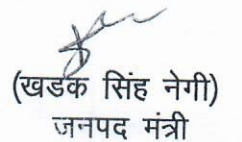 (खडक सिंह नेगी)
जनपद मंत्री